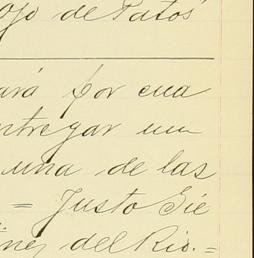 Ojo de Patos
ará por cua
ntregar un
una de las
= Justo Sie
tinez del Rio. =